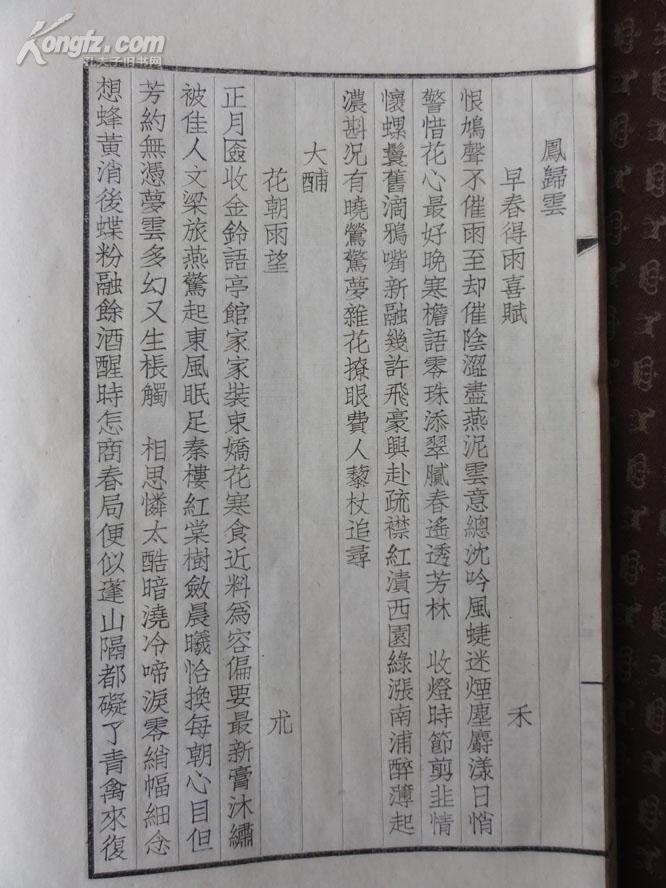 Kongfz.com
孔夫子旧书网
鳳歸雲
早春得雨喜賦 禾
恨鳩聲不催雨至却催陰澀盡燕泥雲意總沈吟風蜨迷煙塵麝漾日悄
警惜花心最好晚寒檐語零珠添翠膩春遙透芳林 收燈時節剪韭情
懷螺鬟舊滴鴉嘴新融幾許飛豪興赴疏襟紅漬西園綠漲南浦醉薄起
濃斟況有曉鶯驚夢雜花撩眼費人藜杖追尋
大酺
花朝雨望 朮
正月匳收金鈴語亭館家家裝束嬌花寒食近料爲容偏要最新膏沐繡
被佳人文梁旅燕驚起東風眠足秦樓紅棠樹斂晨曦恰換每朝心目但
芳約無憑夢雲多幻又生棖觸 相思憐太酷暗澆冷啼淚零綃幅細念
想蜂黃消後蝶粉融餘酒醒時怎商春局便似蓬山隔都礙了青禽來復